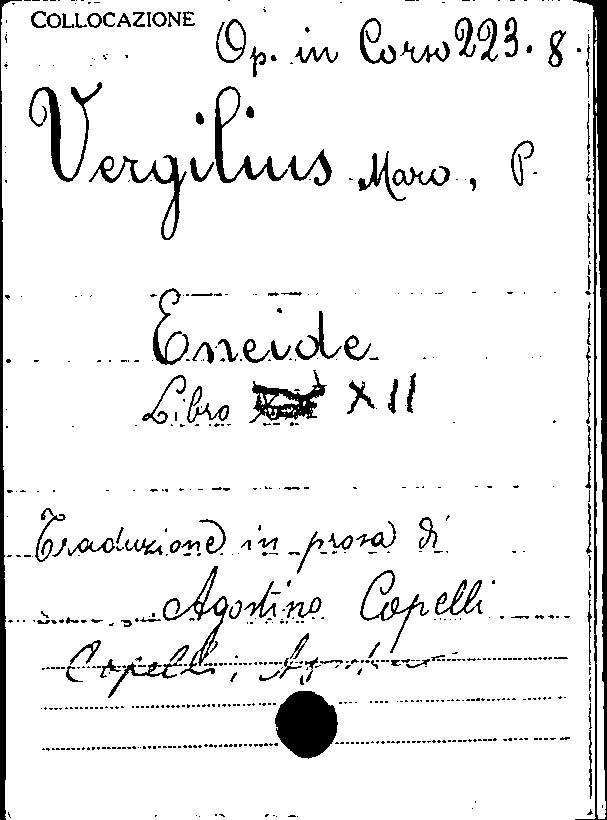 COLLOCAZIONE
Op. in Corso 223. 8.
Vergilius Maro, P.
Eneide
Libro XII
Traduzione in prosa di
Agostino Copelli
Copelli, Agostino